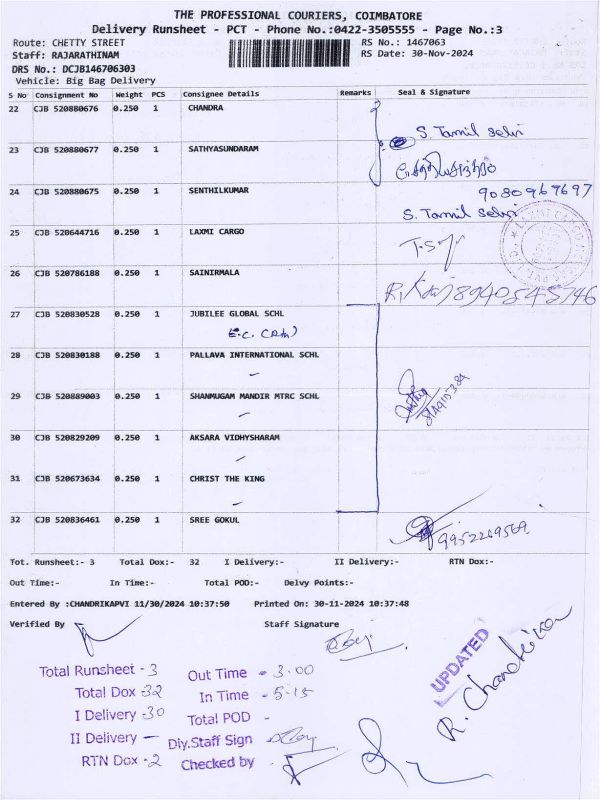 THE PROFESSIONAL COURIERS, COIMBATORE
Delivery Runsheet - PCT - Phone No.:0422-3505555 - Page No.:3
Route: CHETTY STREET RS No.: 1467063
Staff: RAJARATHINAM RS Date: 30-Nov-2024
DRS No.: DCJB146706303
Vehicle: Big Bag Delivery
S No Consignment No Weight PCS Consignee Details Remarks Seal & Signature
22 CJB 520880676 0.250 1 CHANDRA
S. Tamil selvi
23 CJB 520880677 0.250 1 SATHYASUNDARAM
24 CJB 520880675 0.250 1 SENTHILKUMAR 9080967697
S. Tamil selvi
25 CJB 520644716 0.250 1 LAXMI CARGO
26 CJB 520786188 0.250 1 SAINIRMALA
27 CJB 520830528 0.250 1 JUBILEE GLOBAL SCHL
E.C.
28 CJB 520830188 0.250 1 PALLAVA INTERNATIONAL SCHL
29 CJB 520889003 0.250 1 SHANMUGAM MANDIR MTRC SCHL
30 CJB 520829209 0.250 1 AKSARA VIDHYSHARAM
31 CJB 520673634 0.250 1 CHRIST THE KING
32 CJB 520836461 0.250 1 SREE GOKUL
9952269569
Tot. Runsheet:- 3 Total Dox:- 32 I Delivery:- II Delivery:- RTN Dox:-
Out Time:- In Time:- Total POD:- Delvy Points:-
Entered By :CHANDRIKAPVI 11/30/2024 10:37:50 Printed On: 30-11-2024 10:37:48
Verified By Staff Signature
UPDATED
Total Runsheet - 3 Out Time - 3.00
Total Dox - 32 In Time - 5.15
I Delivery - 30 Total POD -
II Delivery - Dly.Staff Sign
RTN Dox - 2 Checked by